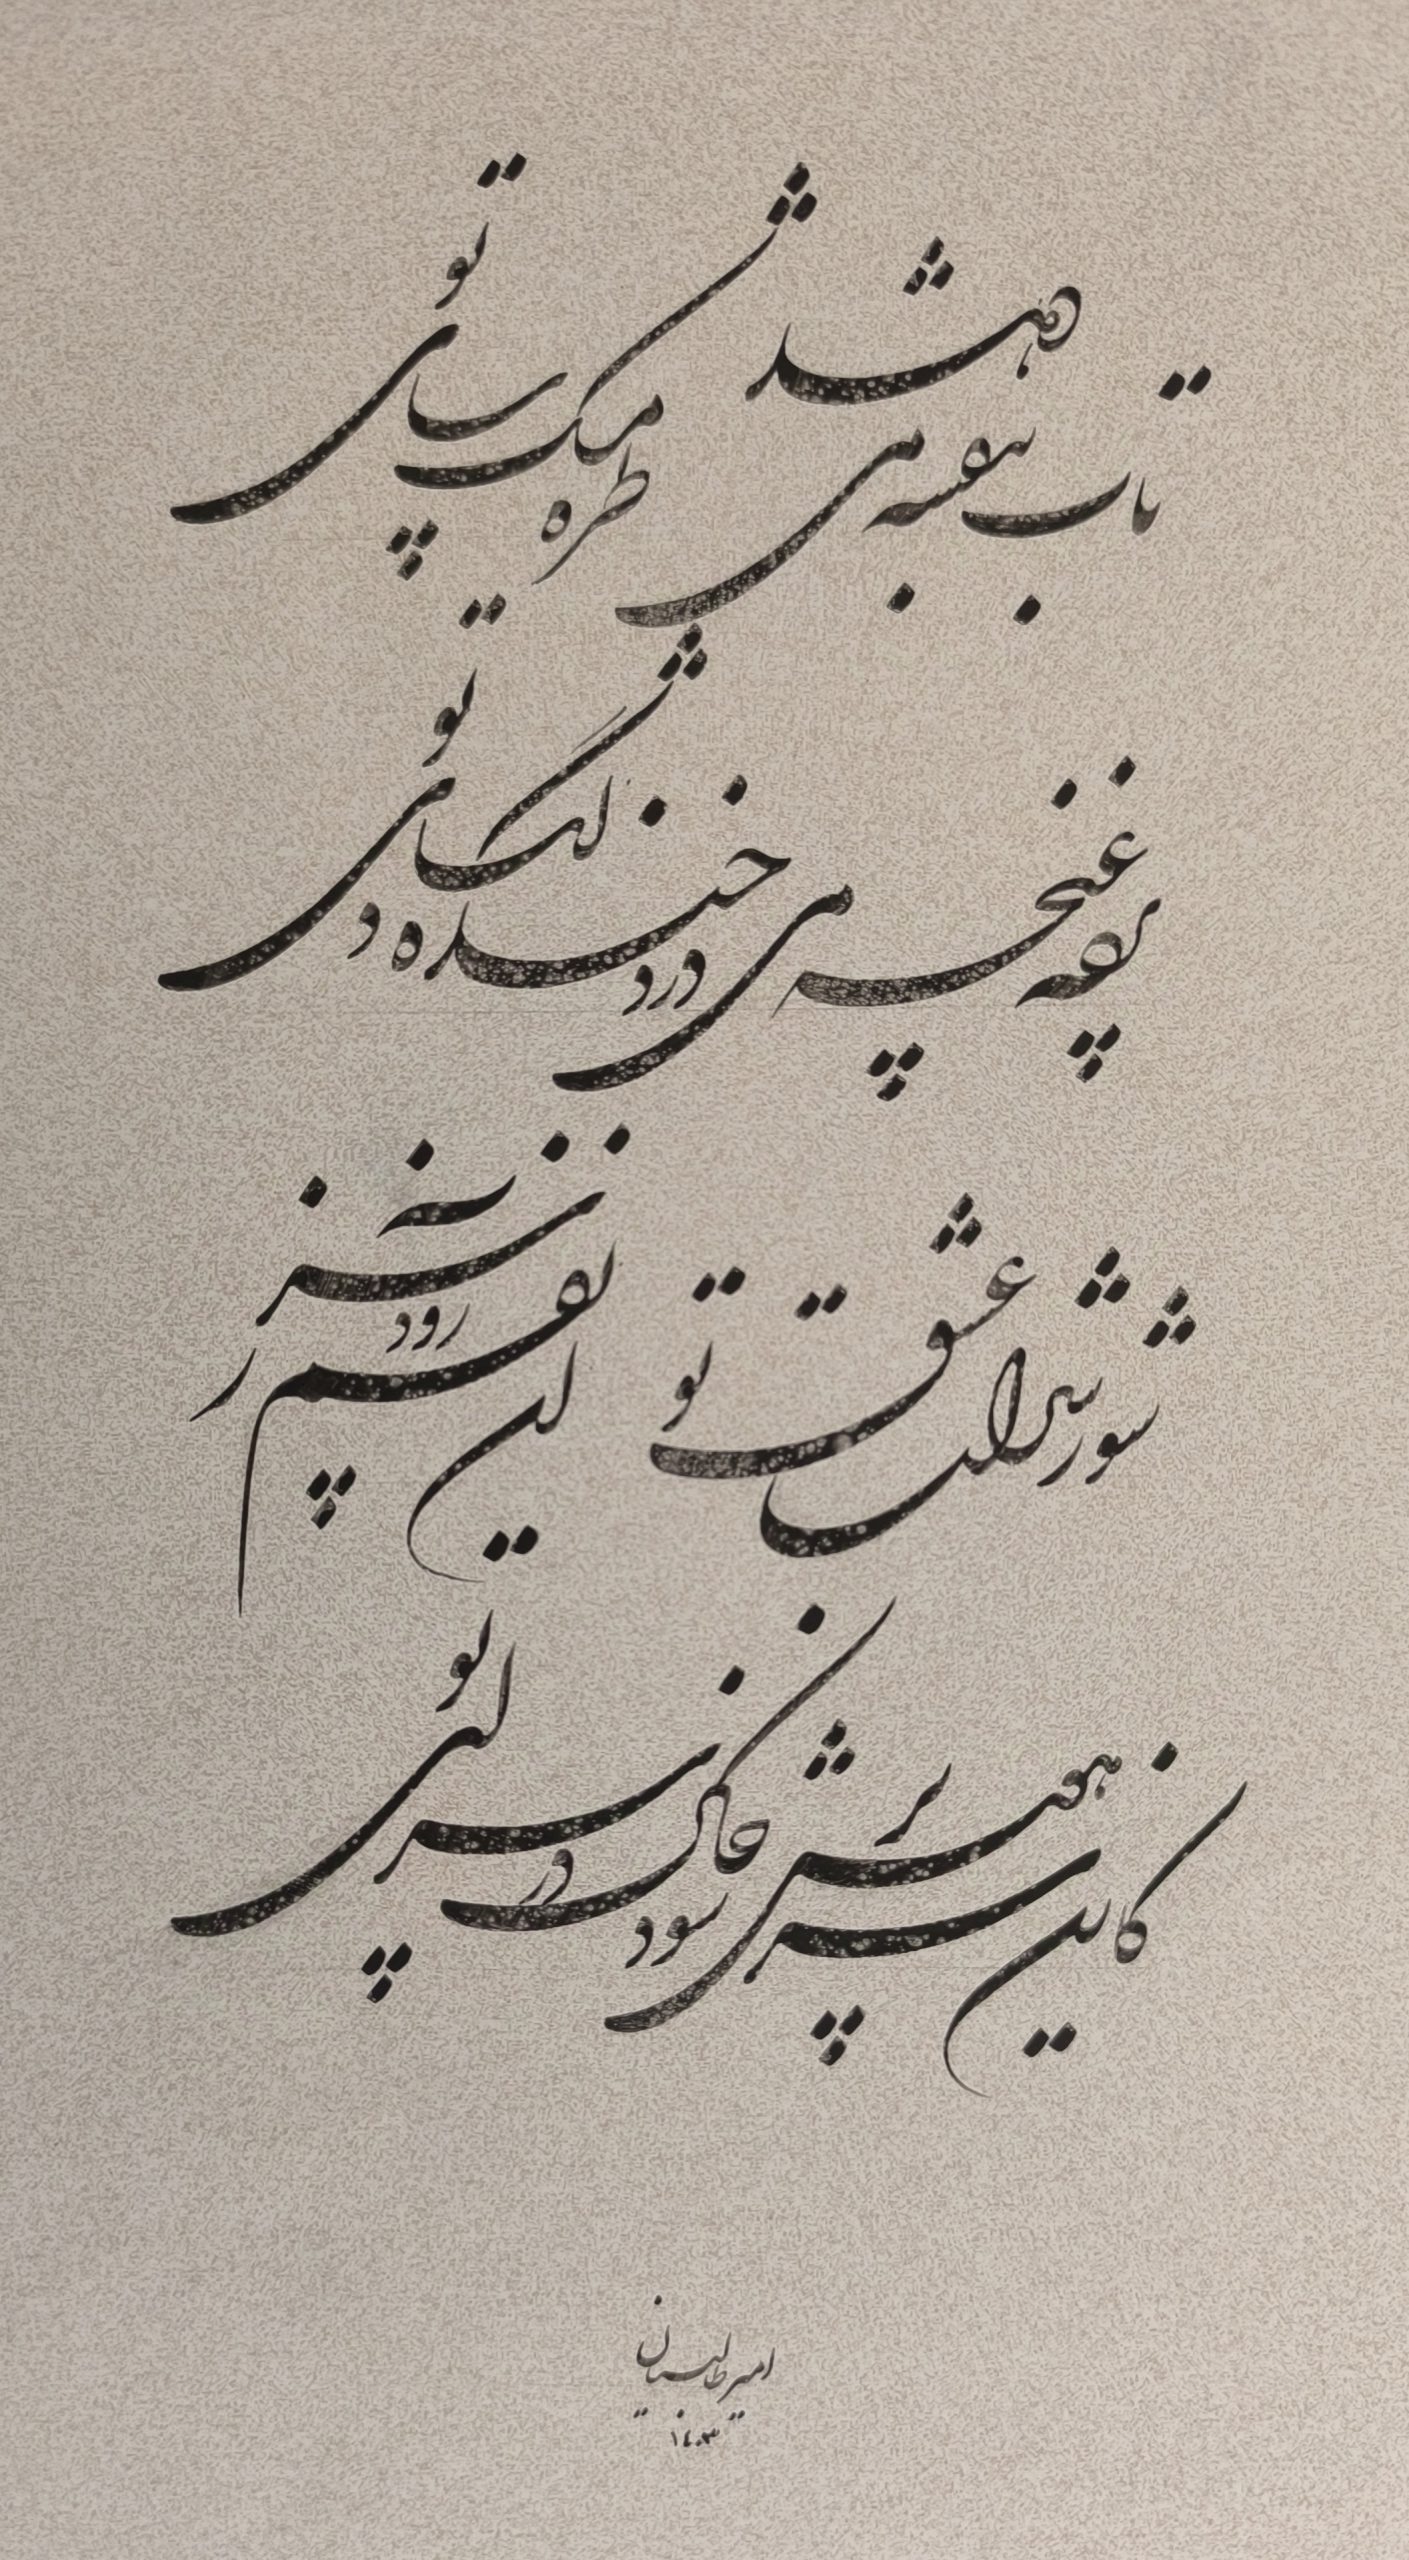 تاب بنفشه می دهد طره مشک سای تو
پرده غنچه می درد خنده دلگشای تو
شور شراب عشق تو آن نفسم رود ز سر
کاین سر پر هوس شود خاک در سرای تو
امیر طالبیان
۱۴۰۳